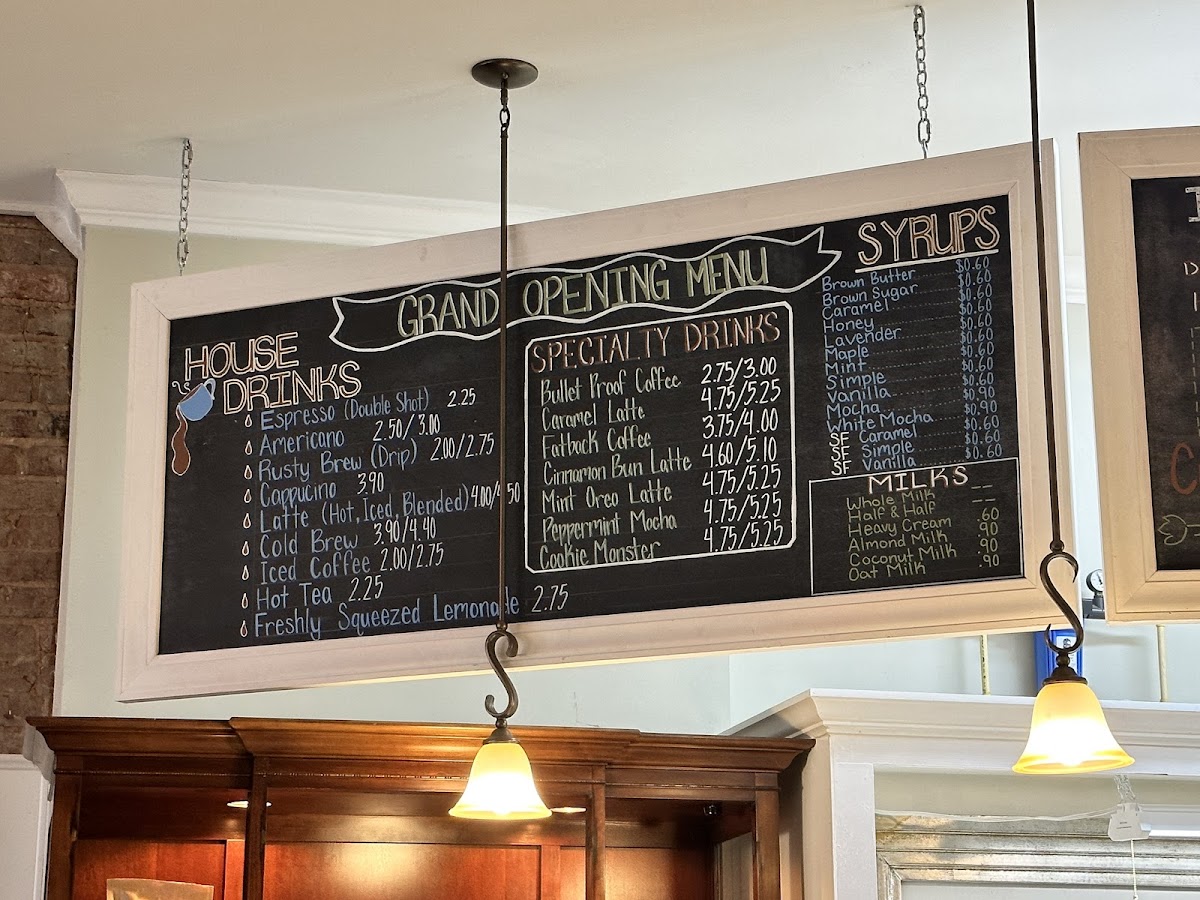 GRAND OPENING MENU
HOUSE
DRINKS
Espresso (Double Shot) 2.25
Americano 2.50/3.00
Rusty Brew (Drip) 2.00/2.75
Cappucino 3.90
Latte (Hot, Iced, Blended) 4.00/4.50
Cold Brew 3.90/4.40
Iced Coffee 2.00/2.75
Hot Tea 2.25
Freshly Squeezed Lemonade 2.75
SPECIALTY DRINKS
Bullet Proof Coffee 2.75/3.00
Caramel Latte 4.75/5.25
Fatback Coffee 3.75/4.00
Cinnamon Bun Latte 4.60/5.10
Mint Oreo Latte 4.75/5.25
Peppermint Mocha 4.75/5.25
Cookie Monster 4.75/5.25
SYRUPS
Brown Butter $0.60
Brown Sugar $0.60
Caramel $0.60
Honey $0.60
Lavender $0.60
Maple $0.60
Mint $0.60
Simple $0.60
Vanilla $0.60
Mocha $0.90
White Mocha $0.90
SF Caramel $0.60
SF Simple $0.60
SF Vanilla $0.60
MILKS
Whole Milk __
Half & Half __
Heavy Cream .60
Almond Milk .90
Coconut Milk .90
Oat Milk .90